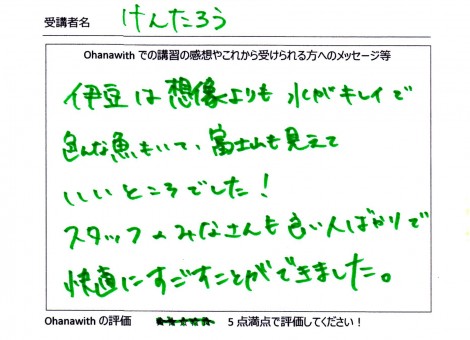 受講者名 けんたろう
Ohanawith での講習の感想やこれから受けられる方へのメッセージ等
伊豆は想像よりも水がキレイで
色んな魚もいて、富士山も見えて
いいところでした！
スタッフのみなさんも良い人ばかりで
快適にすごすことができました。
Ohanawith の評価 5 点満点で評価してください！